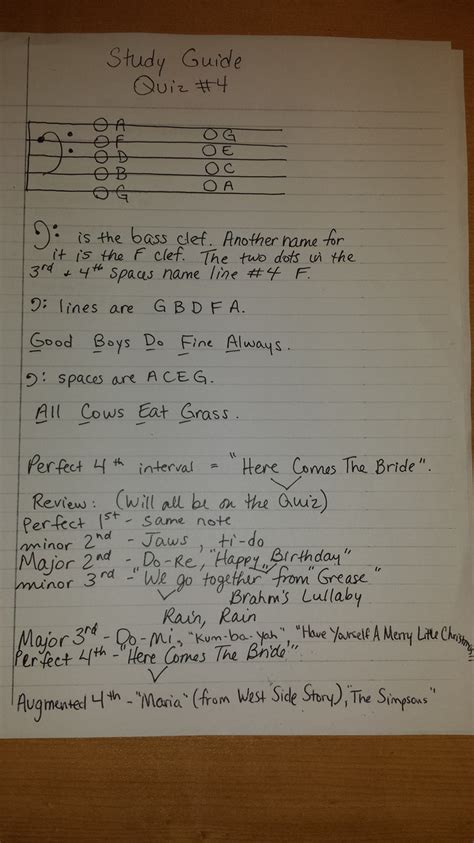 Study Guide
Quiz #4
A
F
D
B
G
G
E
C
A
𝄢 is the bass clef. Another name for
it is the F clef. The two dots in the
3rd + 4th spaces name line #4 F.
𝄢 lines are G B D F A.
Good Boys Do Fine Always.
𝄢 spaces are A C E G.
All Cows Eat Grass.
Perfect 4th interval = "Here Comes The Bride".
Review: (Will all be on the Quiz)
Perfect 1st - same note
minor 2nd - Jaws, ti-do
Major 2nd - Do-Re, "Happy Birthday"
minor 3rd - "We go together" from "Grease"
Brahm's Lullaby
Rain, Rain
Major 3rd - Do-Mi, "Kum-ba-Yah", "Have Yourself A Merry Little Christmas"
Perfect 4th - "Here Comes The Bride"
Augmented 4th - "Maria" (from West Side Story), "The Simpsons"